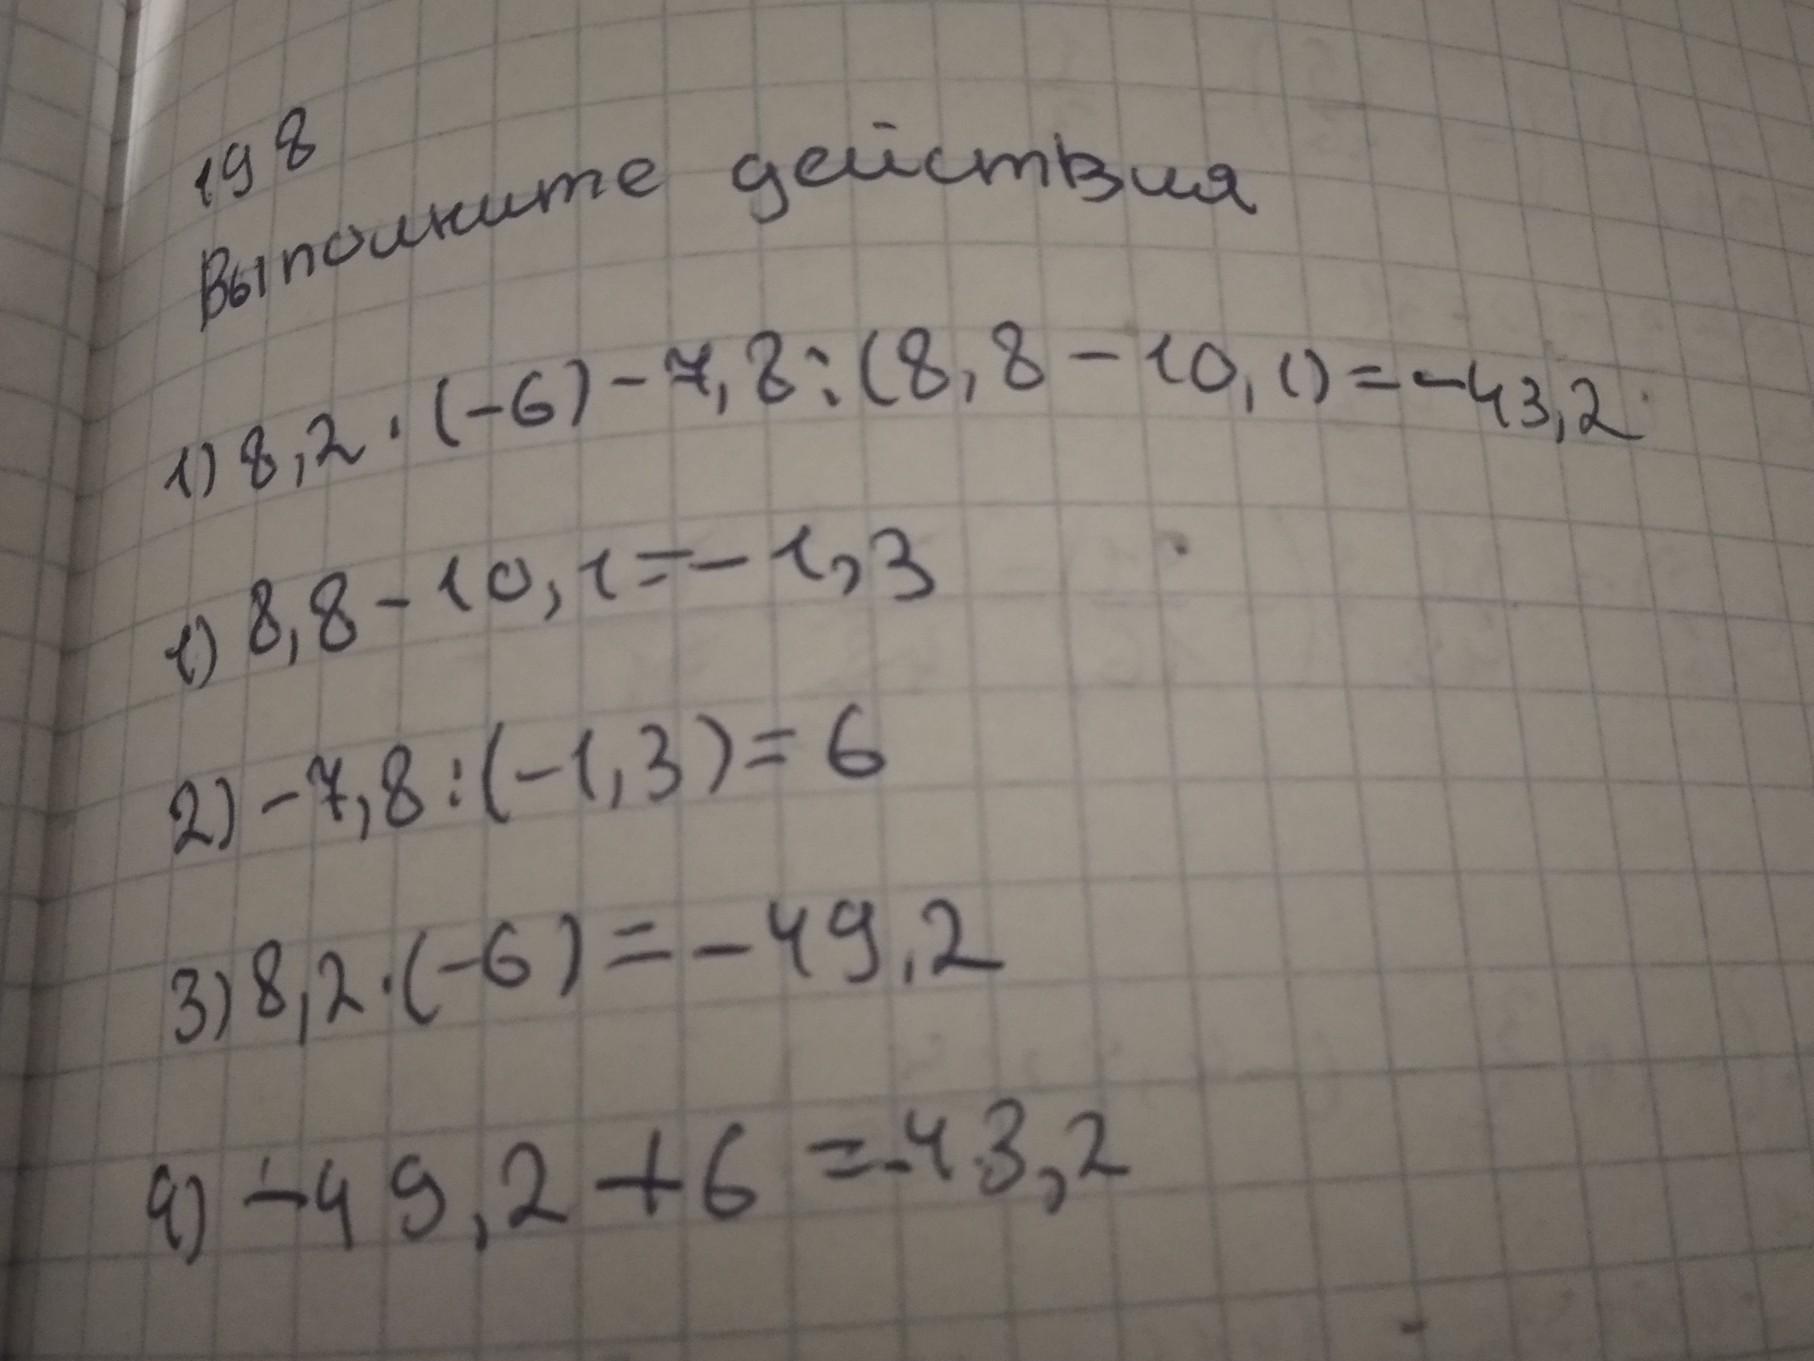 198
Выполните действия
1) 8,2 · (-6) - 7,8 : (8,8 - 10,1) = -43,2
1) 8,8 - 10,1 = - 1,3
2) -7,8 : (-1,3) = 6
3) 8,2 · (-6) = -49,2
4) -49,2 + 6 = -43,2